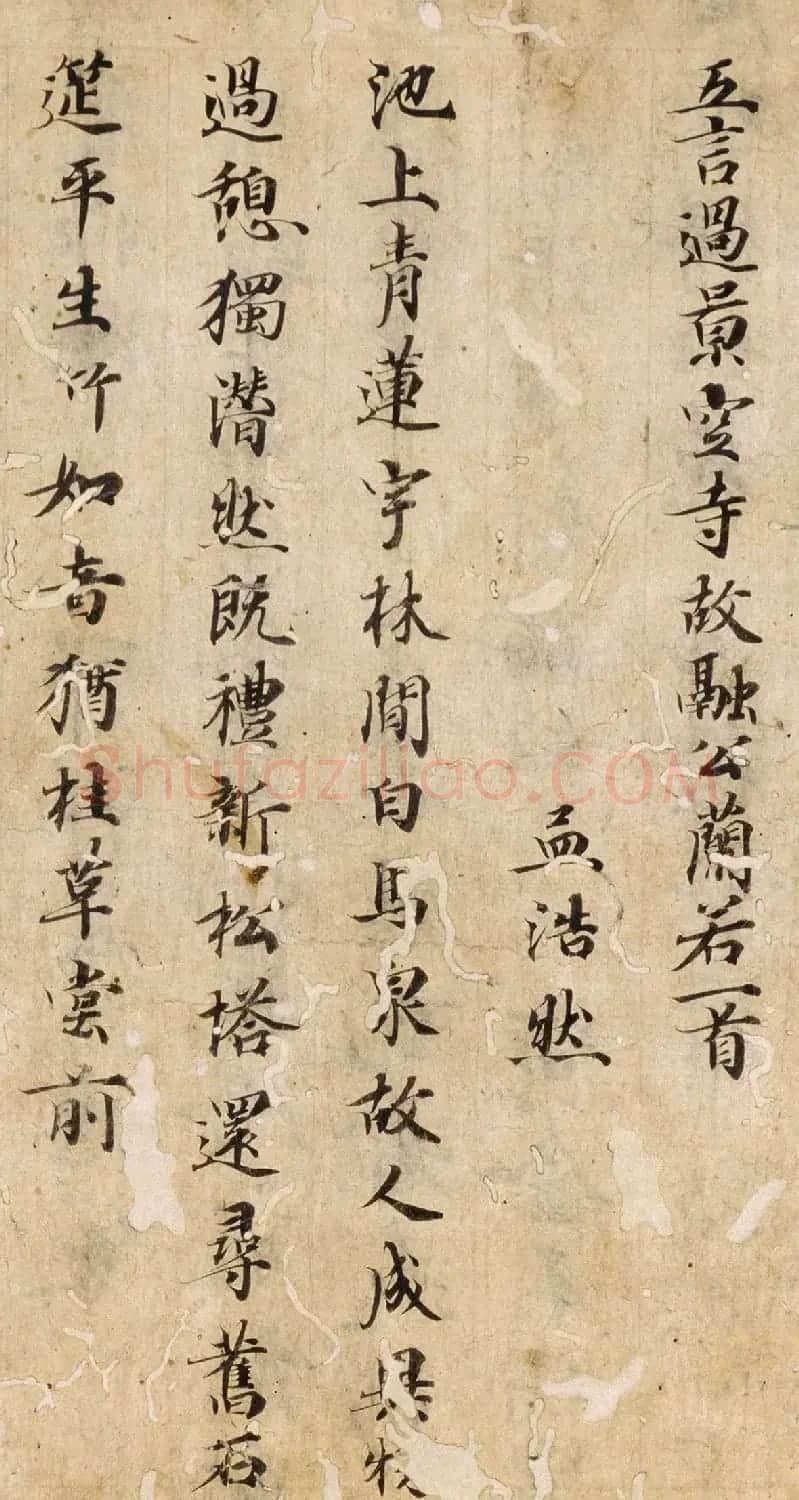 五言過景空寺故融公蘭若一首
孟浩然
池上青蓮宇林間白馬泉故人成異物
過憩獨潸然既禮新松塔還尋舊石
筵平生竹如意猶桂草堂前
Shufaziliao.COM